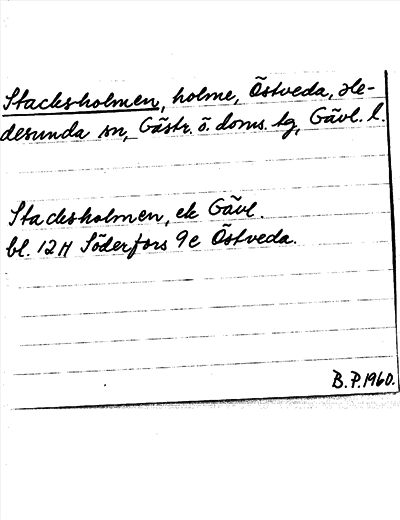 Stacksholmen, holme, Östveda, He-
desunda sn, Gästr. ö. doms. tg, Gävl. l.
Stacksholmen, ek Gävl.
bl. 12H Söderfors 9e Östveda.
B.P.1960.